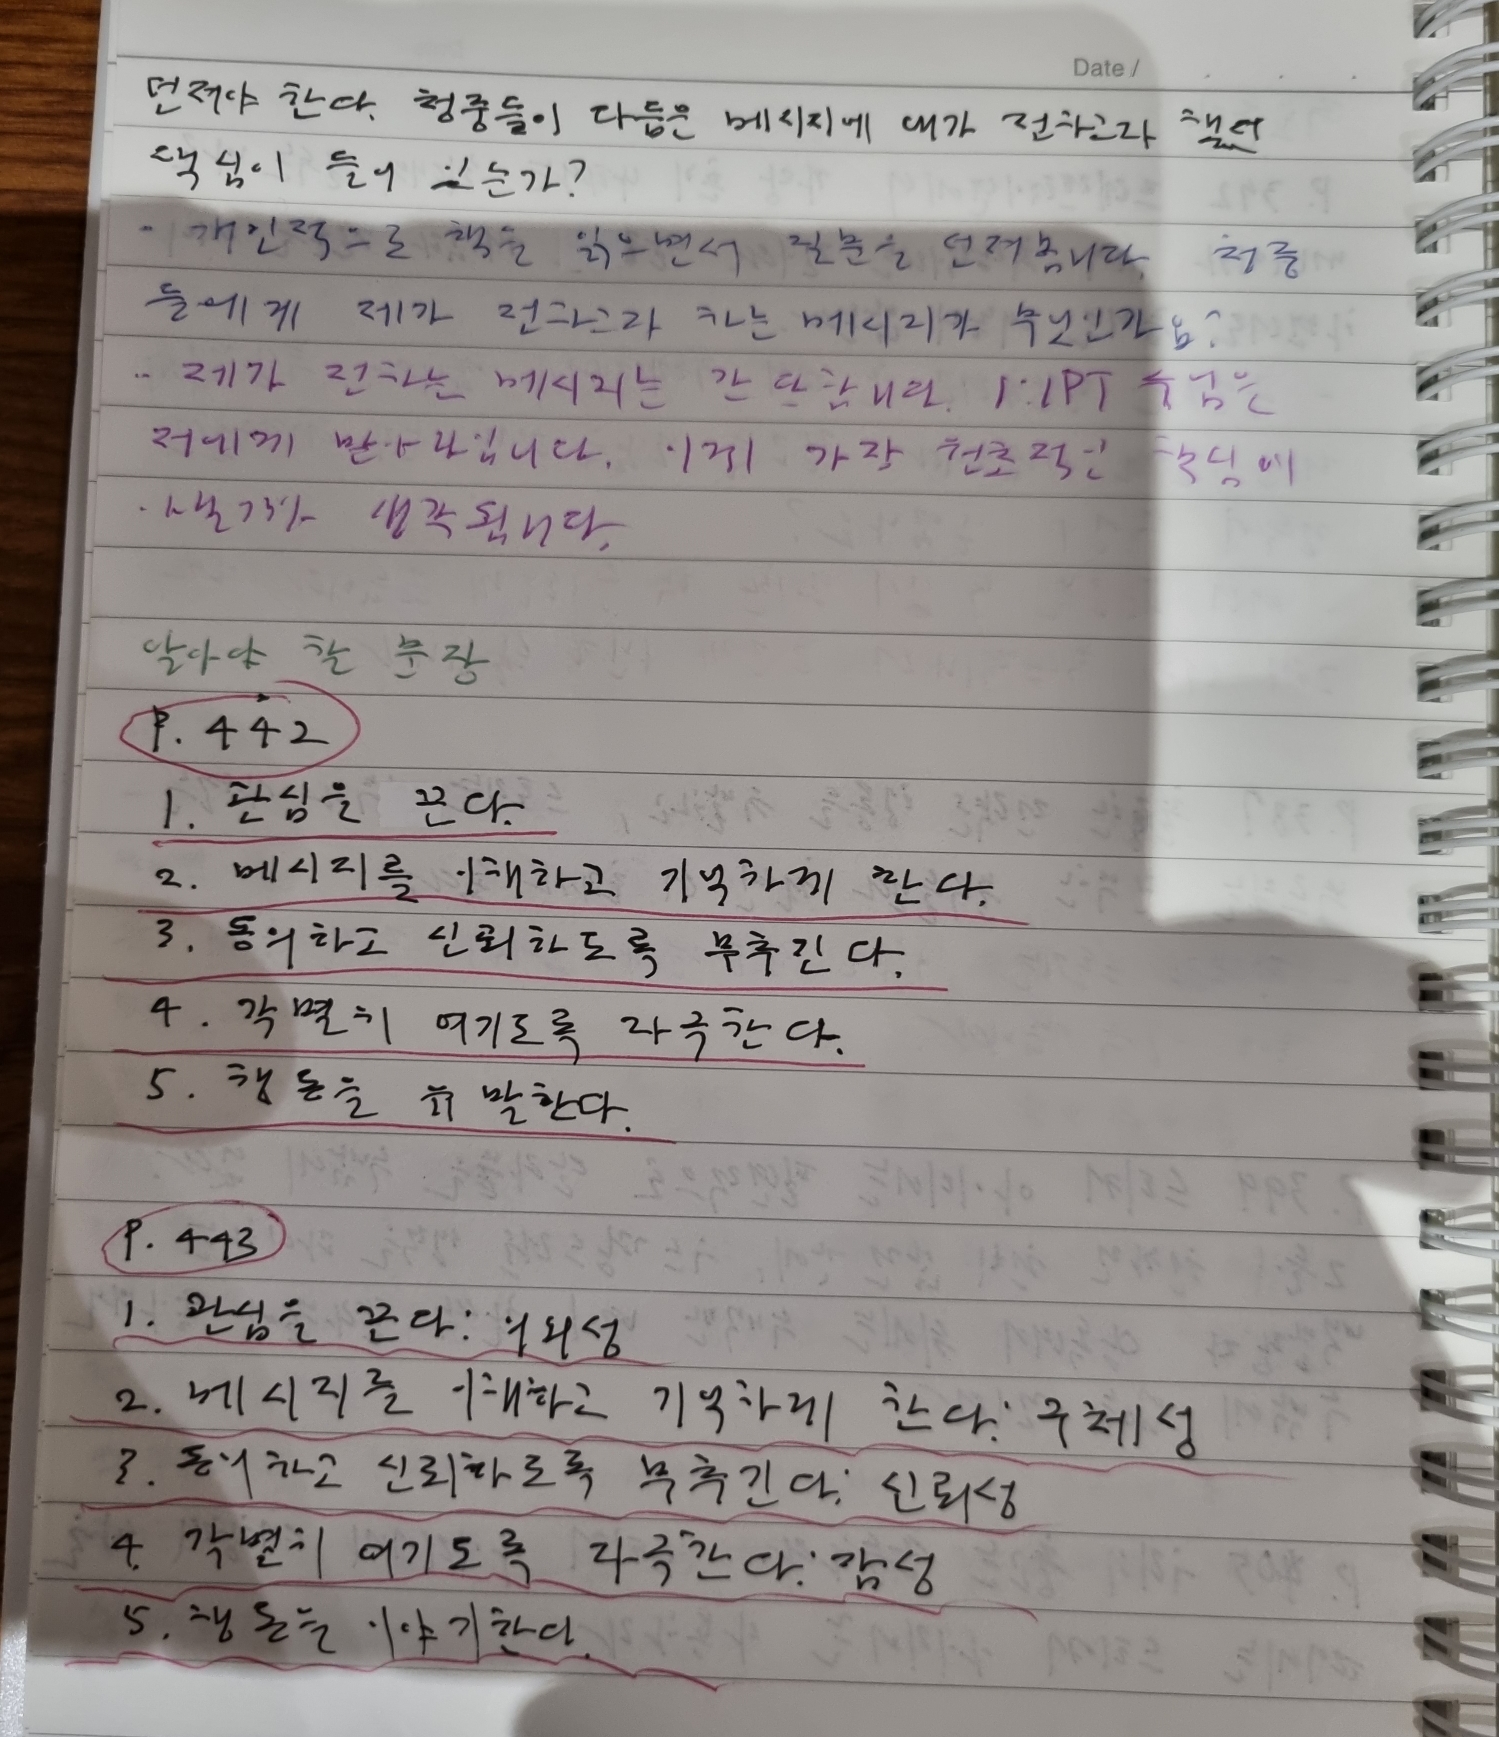 Date /
던져야 한다. 청중들이 다듬은 메시지에 내가 전하고자 했던
핵심이 들어 있는가?
- 개인적으로 책을 읽으면서 질문을 던져봅니다. 청중
들에게 제가 전하고자 하는 메시지가 무엇인가요?
제가 전하는 메시지는 간단합니다. 1:1PT 수업은
저에게 받아라입니다. 이게 가장 원초적인 핵심이
생각됩니다.
알아야 할 문장
P. 442
1. 관심을 끈다.
2. 메시지를 이해하고 기억하게 한다.
3. 동의하고 신뢰하도록 부추긴다.
4. 각별히 여기도록 자극한다.
5. 행동을 유발한다.
P. 443
1. 관심을 끈다: 의외성
2. 메시지를 이해하고 기억하게 한다: 구체성
3. 동의하고 신뢰하도록 부추긴다: 신뢰성
4. 각별히 여기도록 자극한다: 감성
5. 행동을 이야기한다.